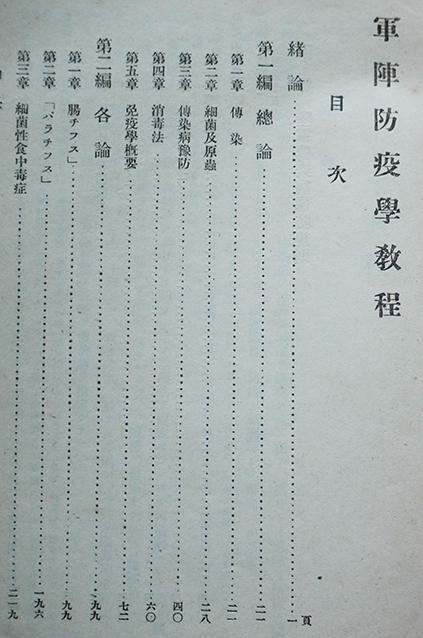 軍陣防疫學敎程
目次
緒論……頁一
第一編 總論……二一
第一章 傳染……二一
第二章 細菌及原蟲……二八
第三章 傳染病豫防……四〇
第四章 消毒法……六〇
第五章 免疫學槪要……七二
第二編 各論……九九
第一章 腸チフス」……九九
第二章 「パラチフス」……一九六
第三章 細菌性食中毒症……二一九